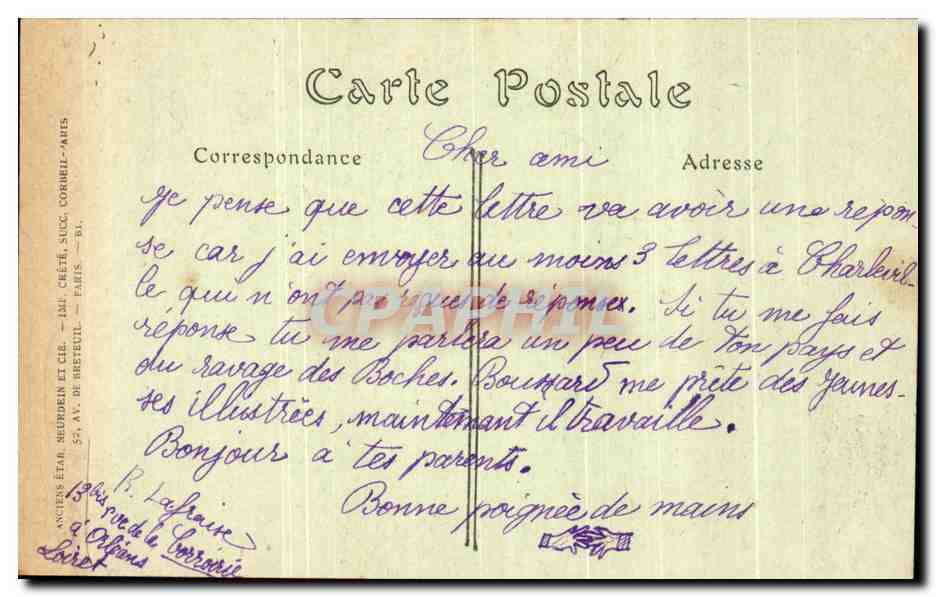 Carte Postale
Correspondance
Adresse
Cher ami
Je pense que cette lettre va avoir une répon-
se car j'ai envoyer au moins 3 lettres à Charlevil-
le qui n'ont pas reçu de réponse. Si tu me fais
réponse tu me parlera un peu de ton pays et
du ravage des Boches. Boussard me prête des jeunes-
ses illustrées, maintenant il travaille.
Bonjour à tes parents.
Bonne poignée de mains
R. Lafraise
13bis rue de la Corroirie
à Orléans
Loiret
ANCIENS ÉTAB. NEURDEIN ET CIE. — IMP. CRÉTÉ, SUCC. CORBEIL-PARIS
52, AV. DE BRETEUIL. — PARIS. — BI.
CPAPHIL